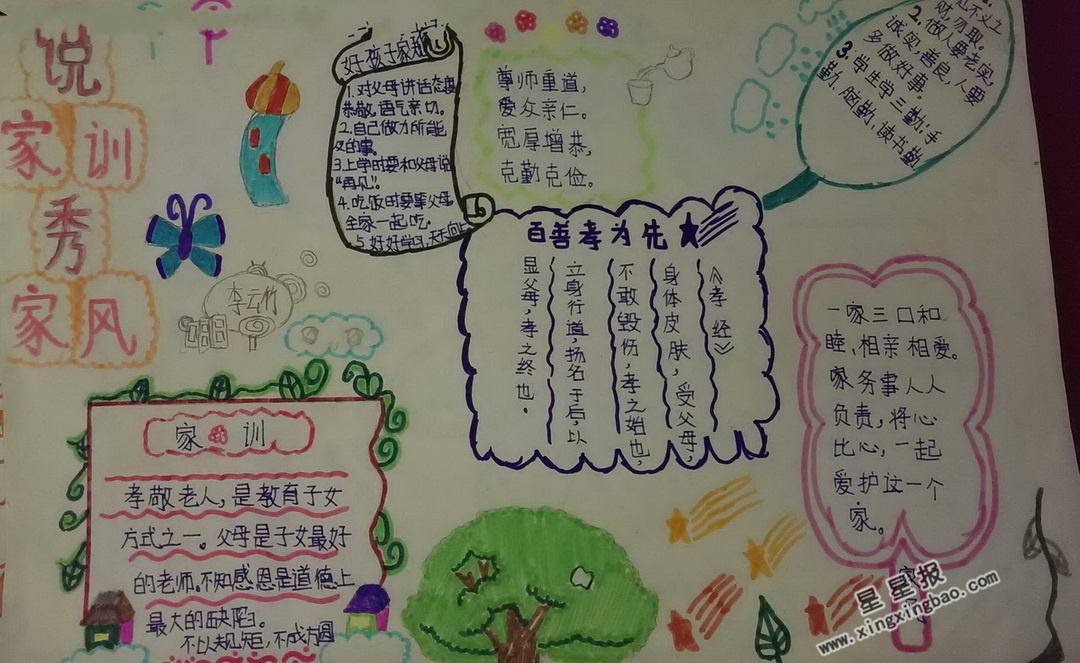 说
家训
秀
家风
好孩子家规
1.对父母讲话态度
恭敬,语气亲切。
2.自己做力所能
及的事。
3.上学时要和父母说
“再见”。
4.吃饭时要等父母
全家一起吃.
5.好好学习,天天向上
尊师重道,
爱众亲仁。
宽厚增恭,
克勤克俭。
见不义之
财,勿取。
2.做人要老实,
诚实,善良,人要
多做好事。
3.学生学三勤:手
勤、脑勤、读书勤
百善孝为先
《孝经》
身体皮肤,受父母,
不敢毁伤,孝之始也,
立身行道,扬名于后,以
显父母,孝之终也。
李云竹
家训
孝敬老人,是教育子女
方式之一。父母是子女最好
的老师,不知感恩是道德上
最大的缺陷。
不以规矩,不成方圆
一家三口和
睦,相亲相爱。
家务事人人
负责,将心
比心,一起
爱护这一个
家。
星星报
www.xingxingbao.com